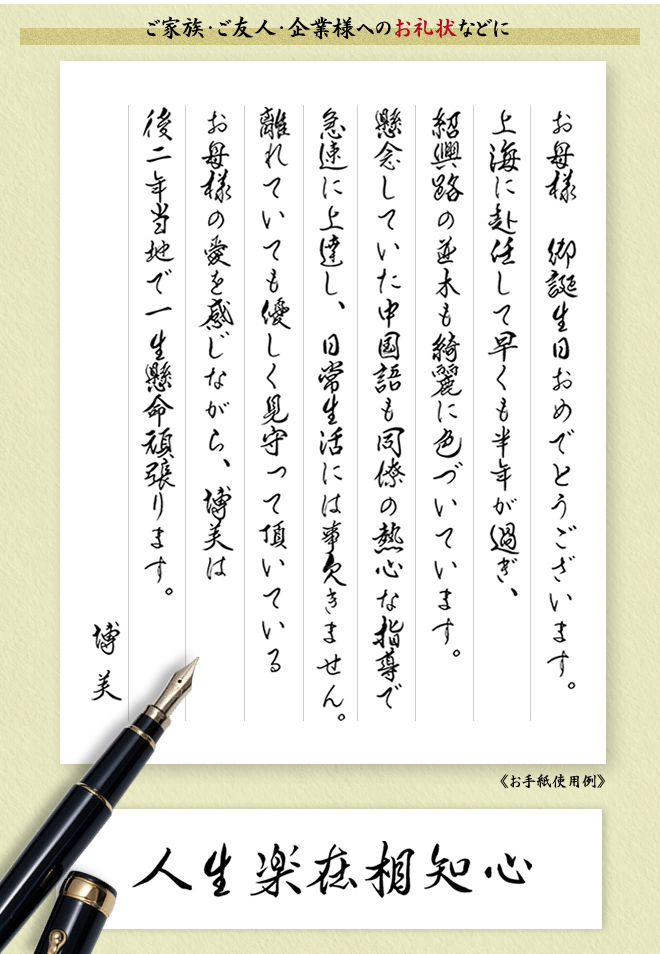 ご家族・ご友人・企業様へのお礼状などに
お母様　御誕生日おめでとうございます。
上海に赴任して早くも半年が過ぎ、
紹興路の並木も綺麗に色づいています。
懸念していた中国語も同僚の熱心な指導で
急速に上達し、日常生活には事欠きません。
離れていても優しく見守って頂いている
お母様の愛を感じながら、博美は
後二年当地で一生懸命頑張ります。
博美
《お手紙使用例》
人生楽在相知心